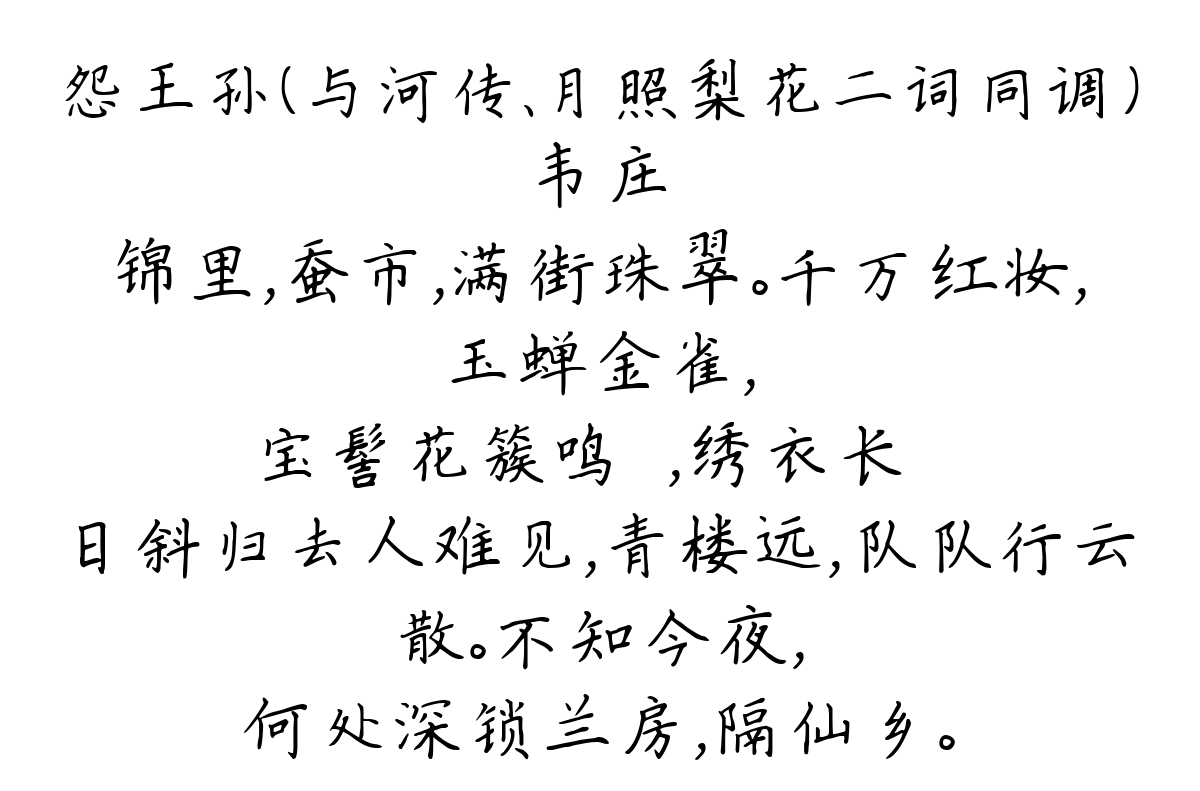 怨王孙(与河传、月照梨花二词同调)
韦庄
锦里,蚕市,满街珠翠。千万红妆,
玉蝉金雀,
宝髻花簇鸣 ,绣衣长
日斜归去人难见,青楼远,队队行云
散。不知今夜,
何处深锁兰房,隔仙乡。